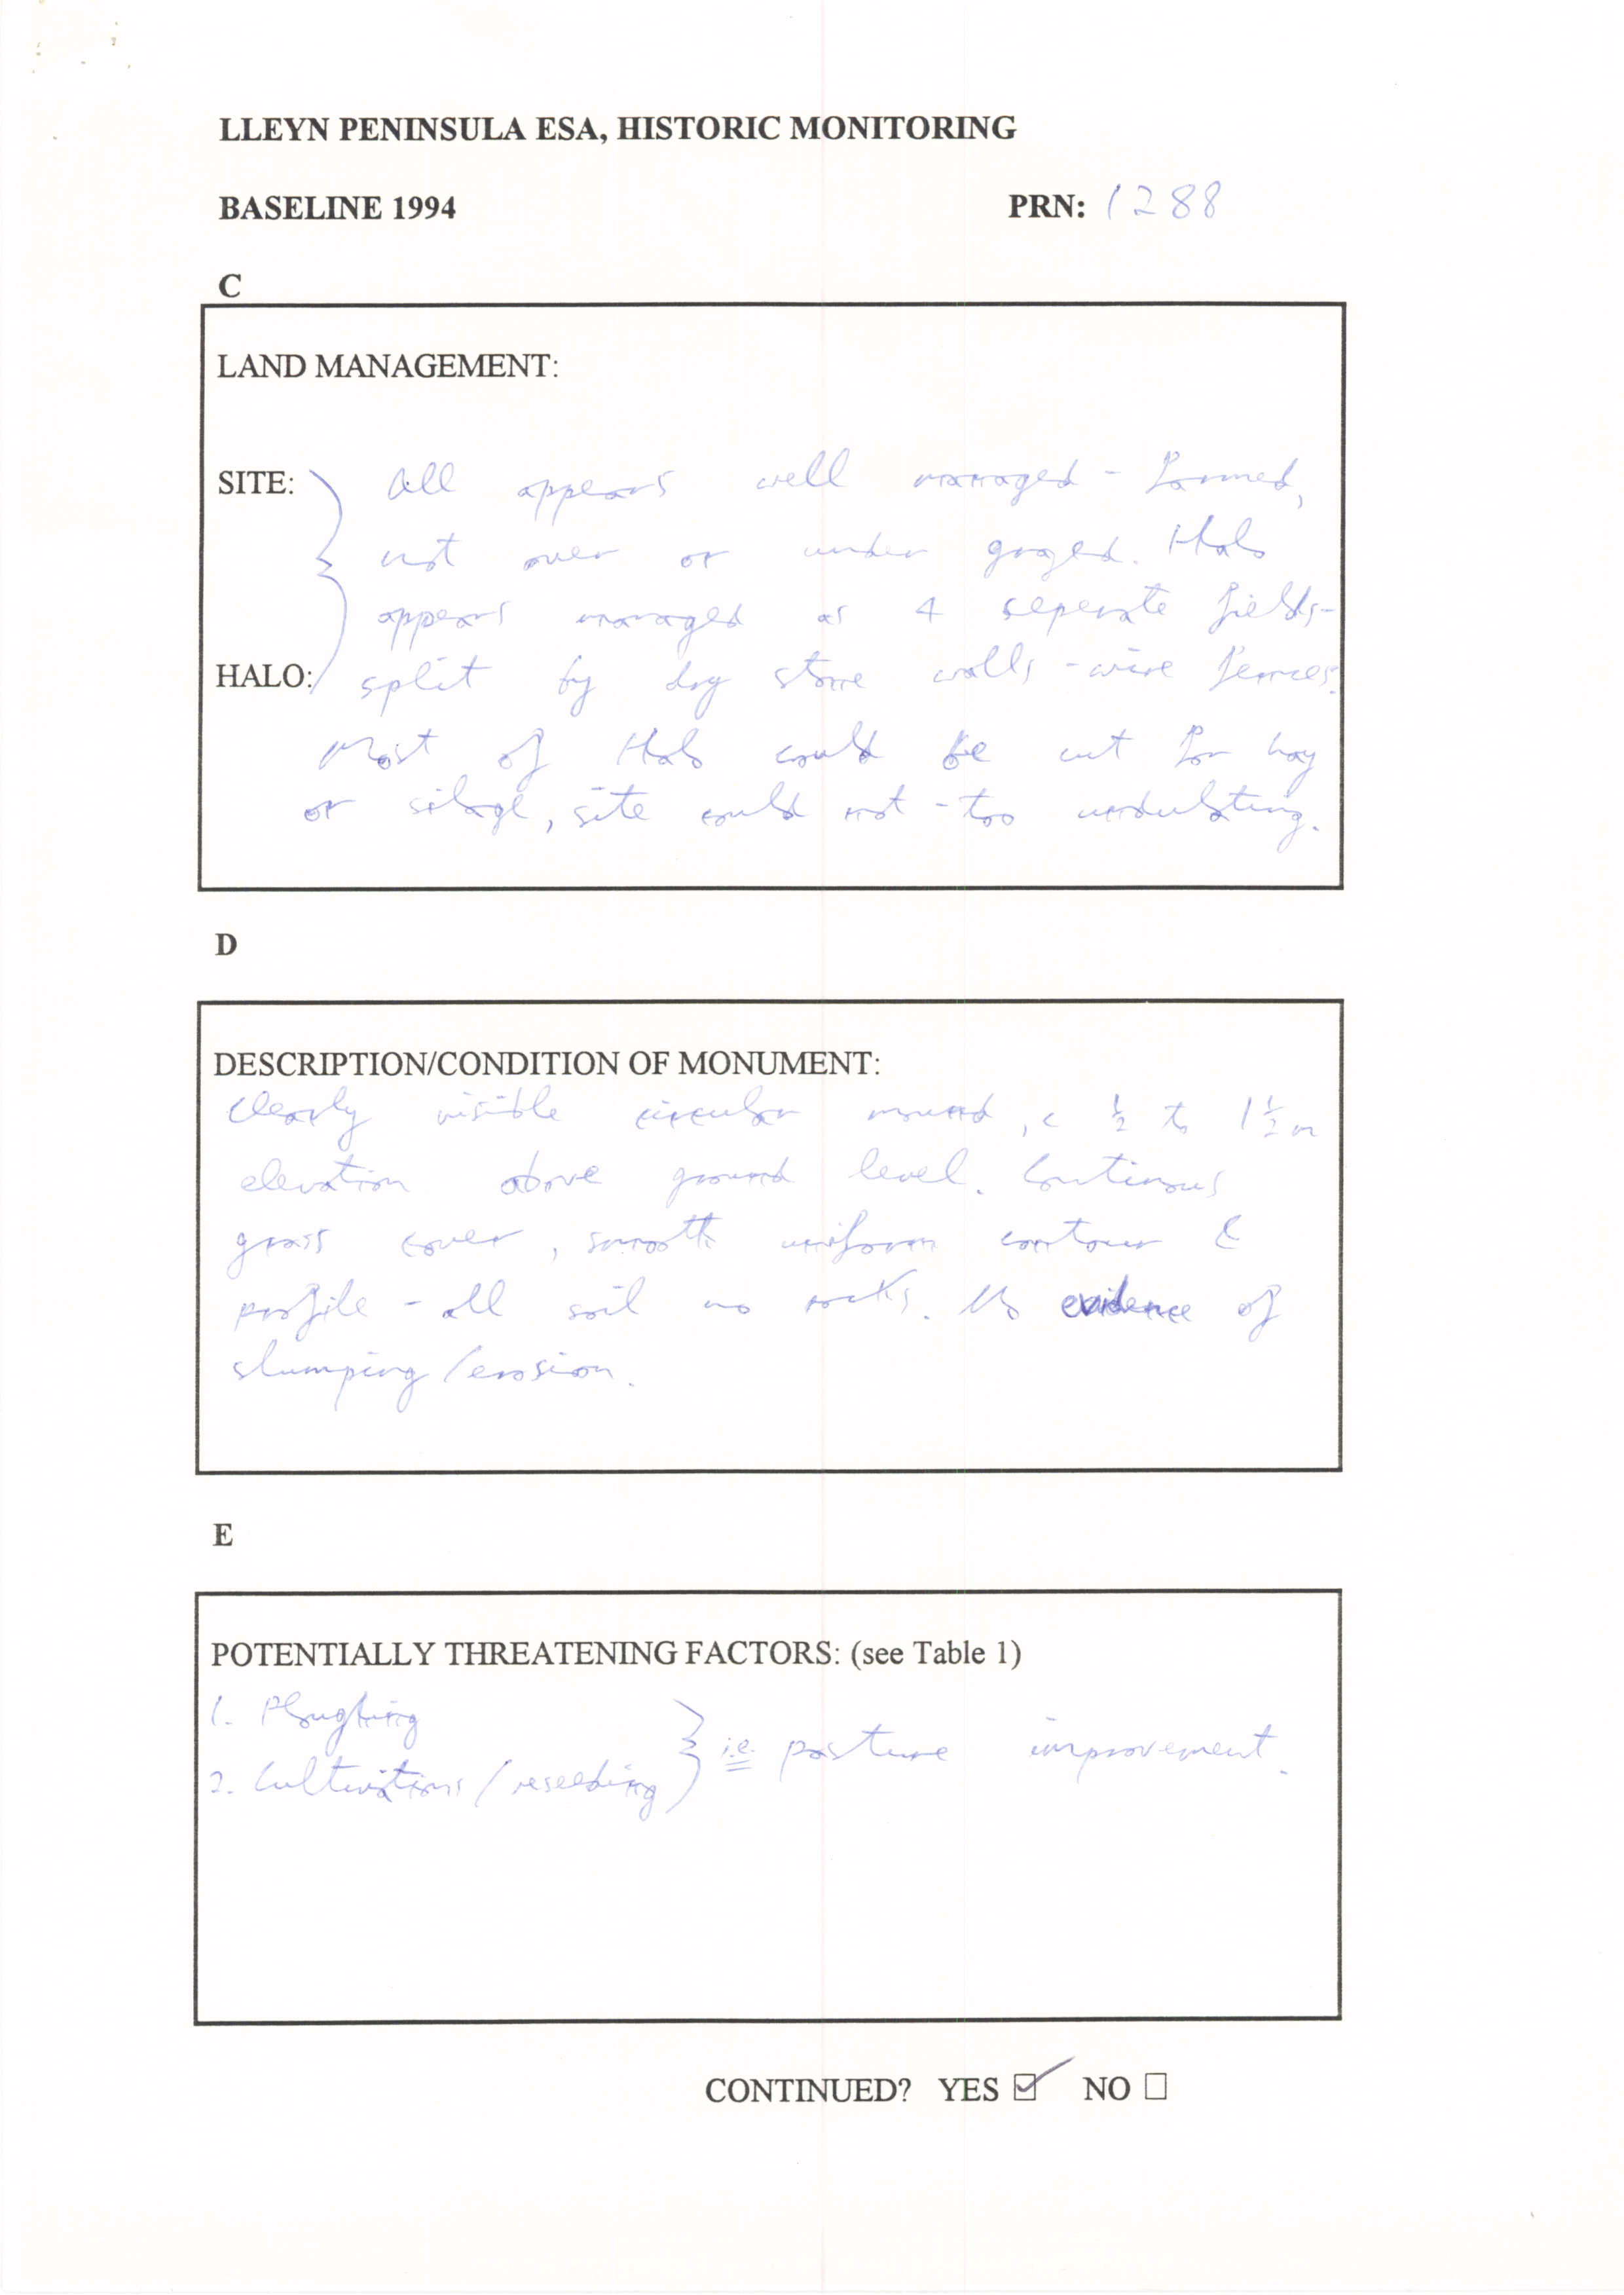 LLEYN PENINSULA ESA, HISTORIC MONITORING
BASELINE 1994 PRN: 1288
C
LAND MANAGEMENT:
SITE: All appears well managed - farmed,
not over or under grazed. Halo
appears managed as 4 seperate fields -
HALO: split by dry stone walls - wire fences.
Most of Halo could be cut for hay
or silage, site could not - too undulating.
D
DESCRIPTION/CONDITION OF MONUMENT:
Clearly visible circular mound, c ½ to 1½ m
elevation above ground level. Continous
grass cover, smooth uniform contour &
profile - all soil no rocks. No evidence of
slumping/erosion.
E
POTENTIALLY THREATENING FACTORS: (see Table 1)
1. Ploughing
2. Cultivations / reseeding } i.e. pasture improvement.
CONTINUED? YES ☑ NO ☐